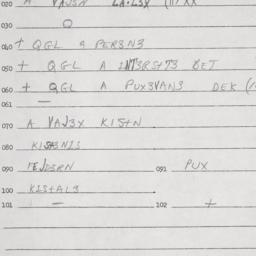 020 A VAJ3N LA.L3X (11/XX
030 Q
040 + QGL A PER3N3
050 + QGL A INT3RSIT3 DET
060 + QGL A PUX3VAN3 DEK (
061 —
070 A VAJ3X KIS+N
080 KIS+3NIS
090 091 PUX
100 KIS+AL3
101 — 102 +